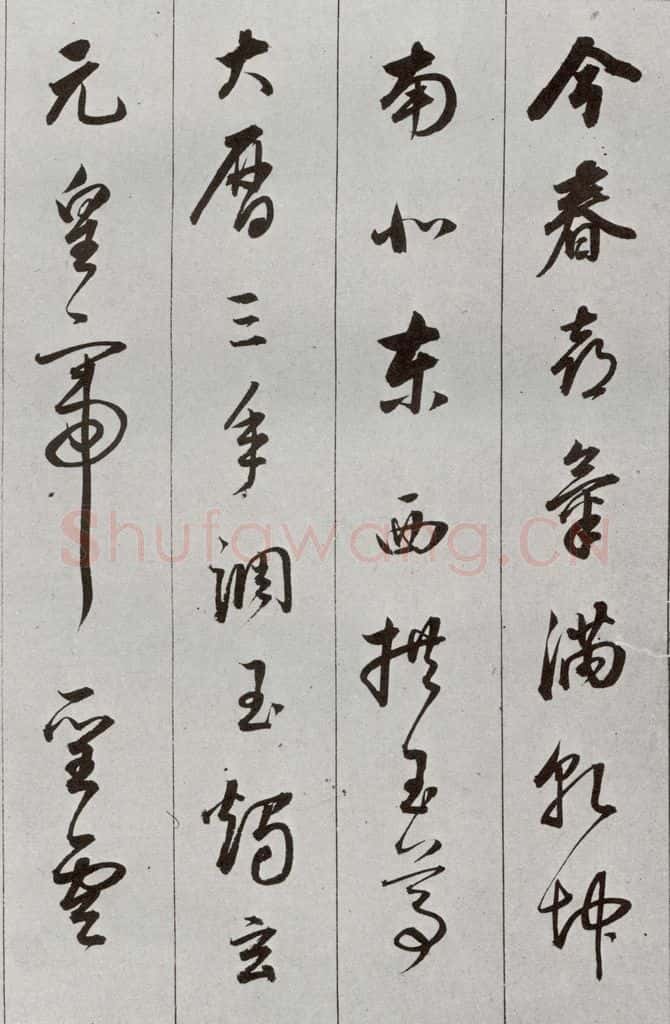 今春喜氣滿乾坤
南北東西拱至尊
大曆三年調玉燭玄
元皇帝聖雲
Shufawang.CN